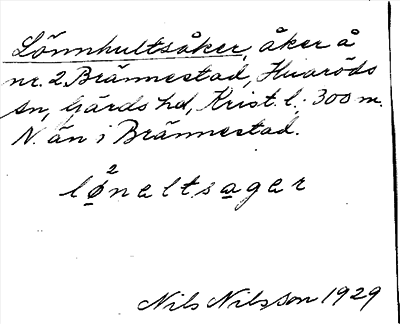 Lönnhultsåker, åker å
nr. 2 Brännestad, Huaröds
sn, Gärds hd, Krist. l. 300 m.
N. än i Brännestad.
lø²neltsager
Nils Nilsson 1929